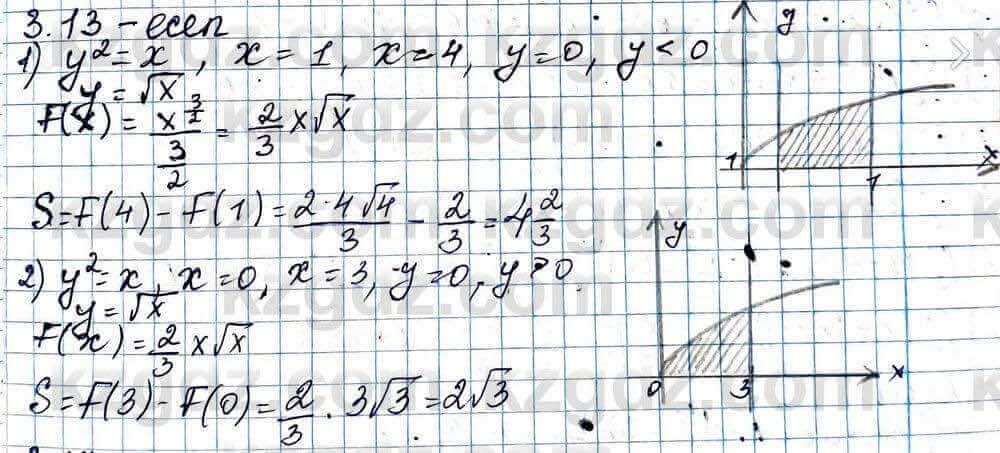 3.13 - есеп
1) y² = x, x = 1, x = 4, y = 0, y < 0
y = √x
F(x) = x^(3/2) / (3/2) = 2/3 x√x
S = F(4) - F(1) = 2·4√4/3 - 2/3 = 4 2/3
2) y² = x, x = 0, x = 3, y = 0, y > 0.
y = √x
F(x) = 2/3 x√x
S = F(3) - F(0) = 2/3 · 3√3 = 2√3
y
1
1
x
y
0
3
x
kzgdz.com